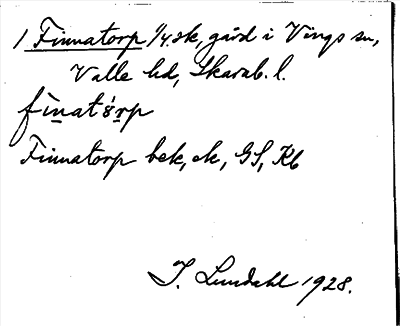 1 Finnatorp 1/4 sk, gård i Vings sn,
Valle hd, Skarab. l.
finatòrp
Finnatorp bek, ek, GS, Kb
I. Lundahl 1928.